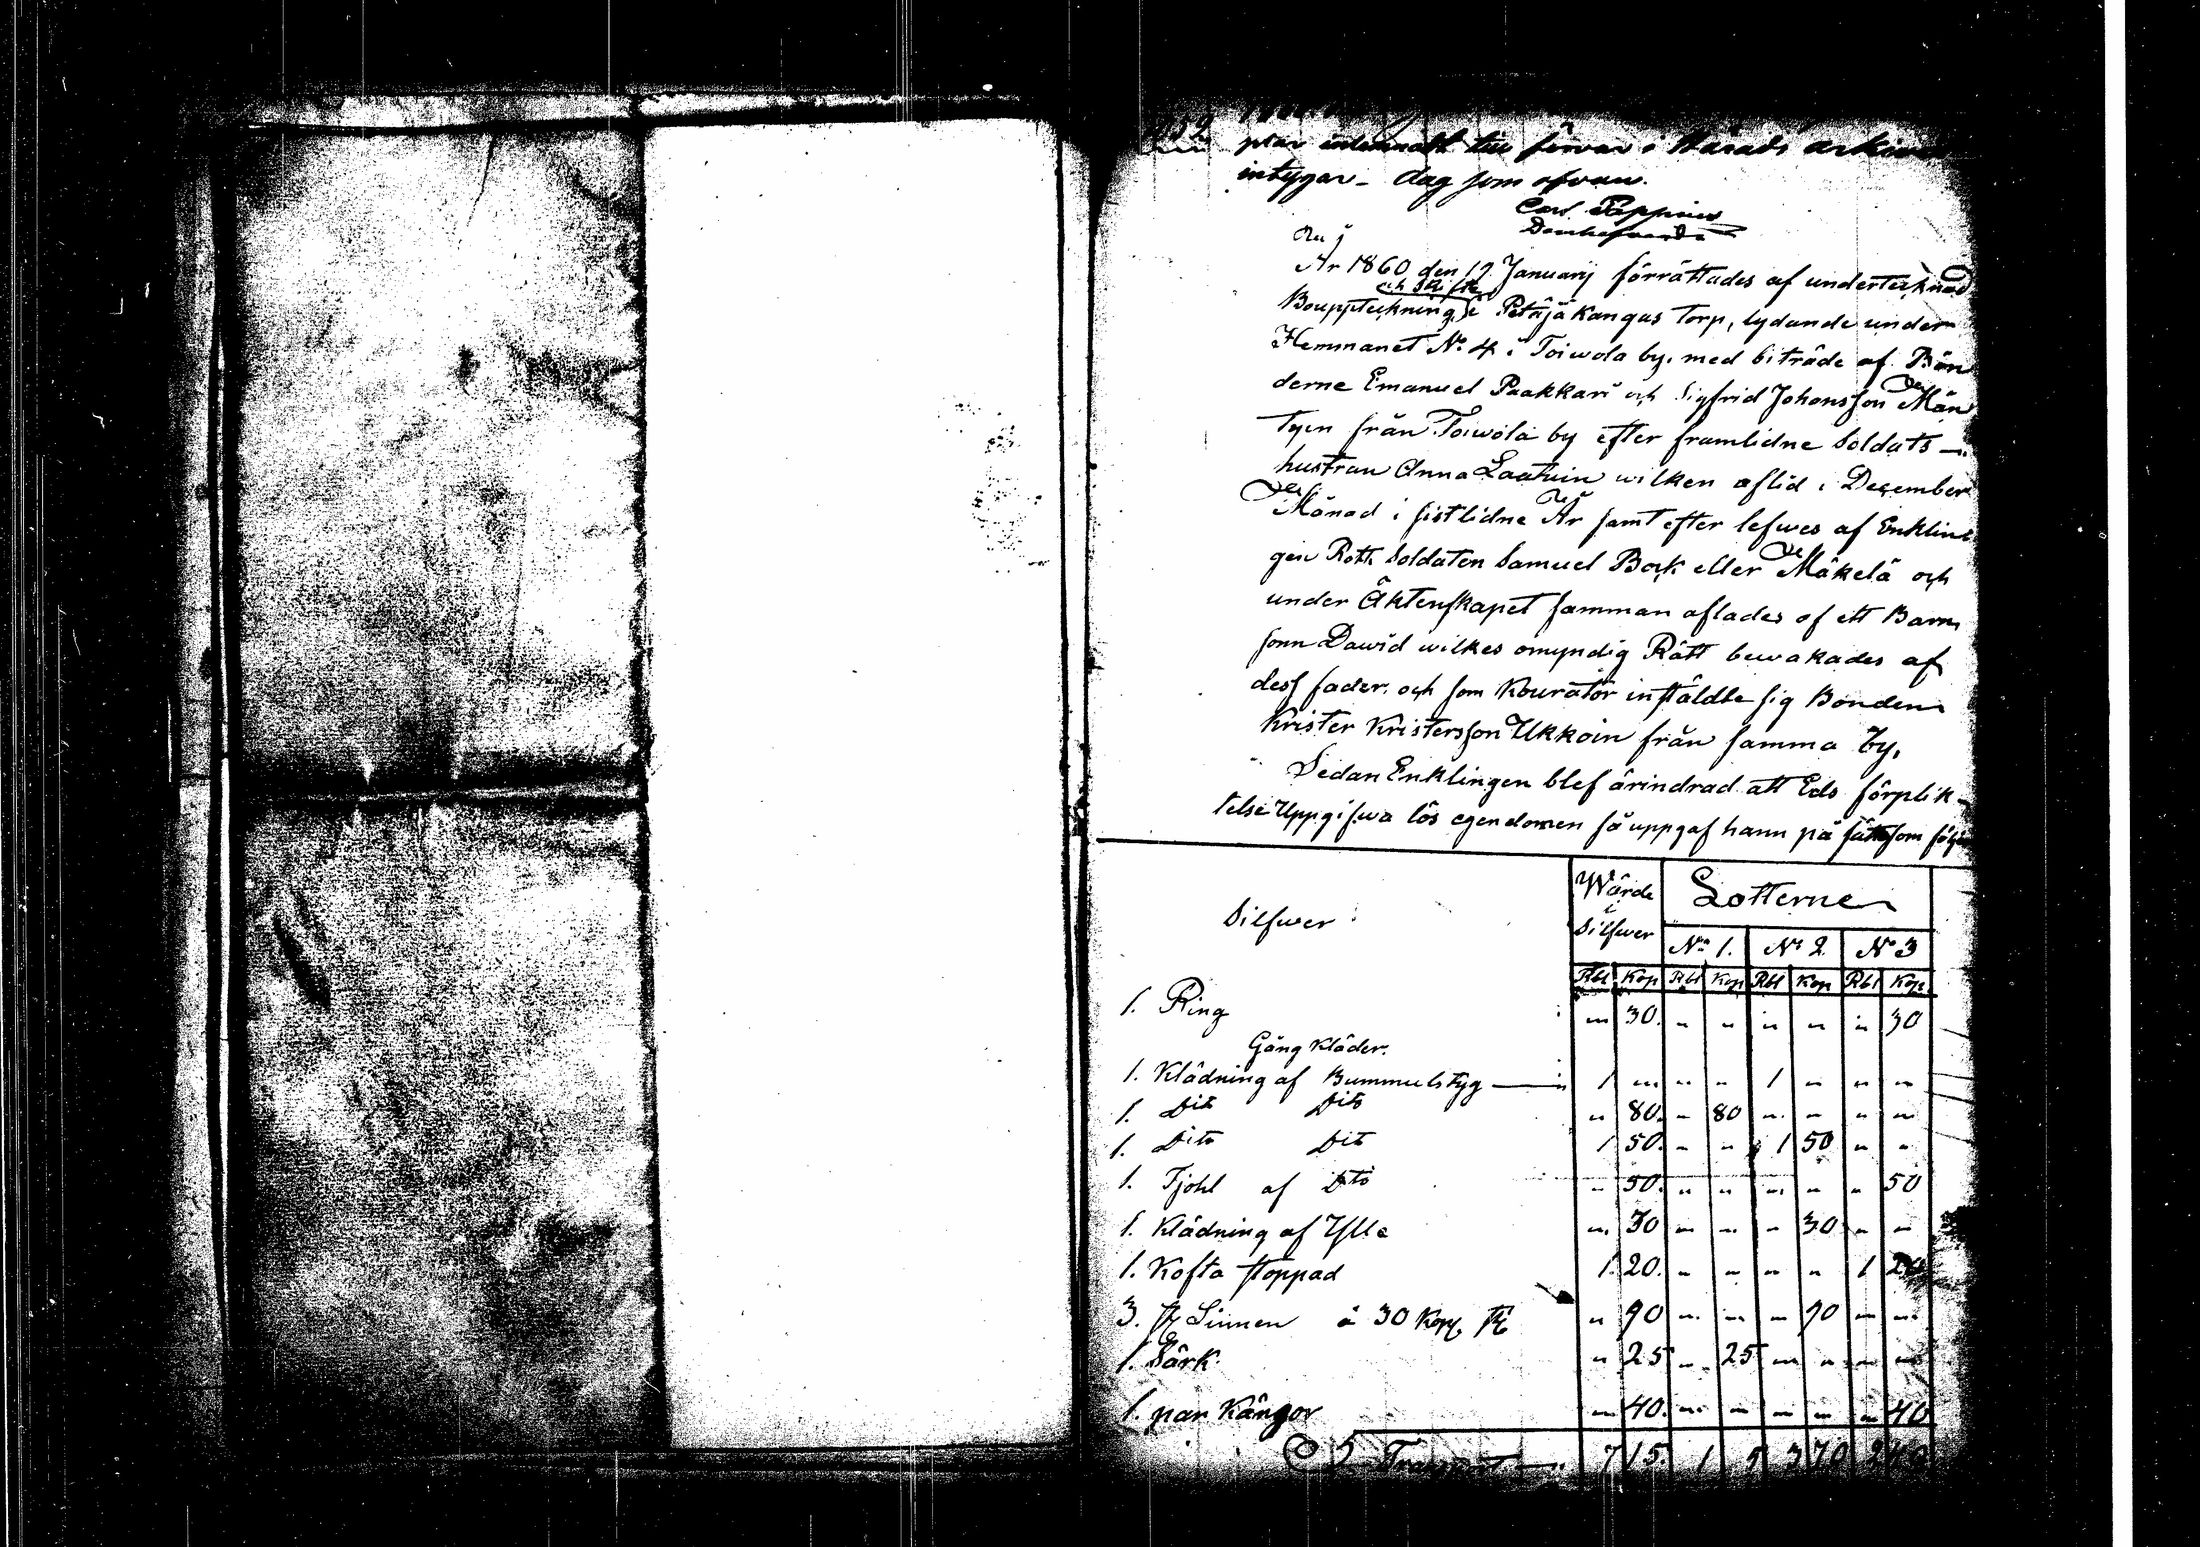 intygar - dag som ofvan.
År 1860 den 19 Januarij förrättades af undertecknad
Bouppteckning i Petäjäkangas Torp, lydande under
Hemmanet No 4 i Toiwola by, med biträde af Bön
derne Emanuel Paakkari och Sigfrid Johansson Män
tyin från Toiwola by efter framlidne Soldats -
hustrun Anna Laatuin wilken aflid i December
Månad i sistlidne År samt efter lefwes af Enklin
gen Rott. Soldaten Samuel Bock eller Mäkelä och
under Äktenskapet samman aflades af ett Barn
sonn Dawid wilkes omyndig Rätt bewakades af
dess fader och som Kourator instäldte sig Bonden
Krister Kristersson Ukkoin från samma by,
Sedan Enklingen blef ärindrad att Eds förplik-
telse Uppgifwa lös egendomen så uppgaf hann på sätt som följer
Silfwer
Wärde i Silfwer
Lotterne
No 1. No 2 No 3
Rbl Kop Rbl Kop Rbl Kop Rbl Kop
1. Ring " 30. " " " " " 30
Gång Kläder.
1. Klädning af Bummulstyg — 1 " " " 1 " " "
1. Dito Dito " 80. " 80 " " " "
1. Dito Dito 1 50. " " 1 50 " "
1. Tjohl af Dito " 50. " " " " " 50
1. Klädning af Ylle " 30 " " " 30 " "
1. Kofta stoppad 1. 20. " " " " 1 20
3. st Linnen á 30 Kop. st " 90 " " " 90 " "
1. Särk " 25 " 25 " " " "
1. par Kängor " 40. " " " " " 40
Transport — 7 15. 1 5 3 70 2 40